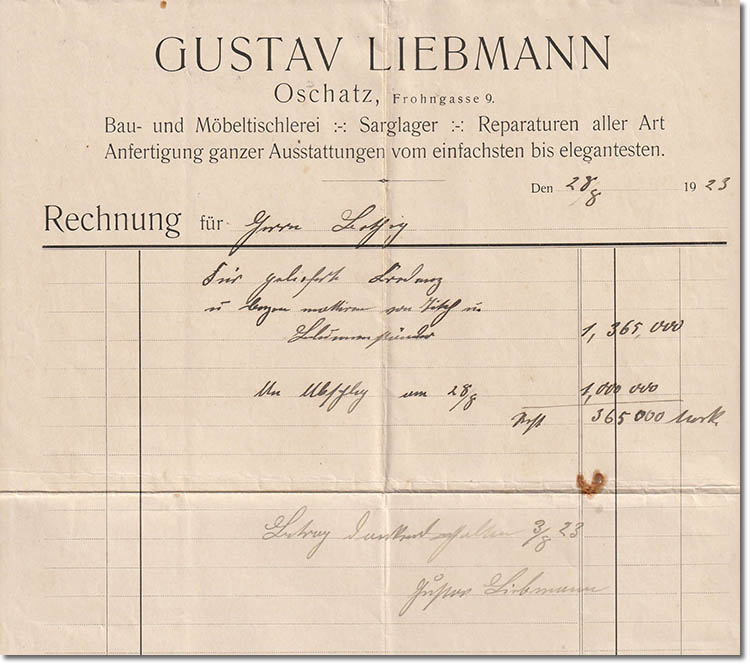 GUSTAV LIEBMANN
Oschatz, Frohngasse 9.
Bau- und Möbeltischlerei :-: Sarglager :-: Reparaturen aller Art
Anfertigung ganzer Ausstattungen vom einfachsten bis elegantesten.
Den 28/8 1923
Rechnung für Herrn
Für gelieferte Kredenz
u mattieren von Tisch u
Blumenständer 1,365,000
am 28/8 1,000 000
Rest 365000 Mark
Betrag dankend erhalten 3/8 23
Gustav Liebmann